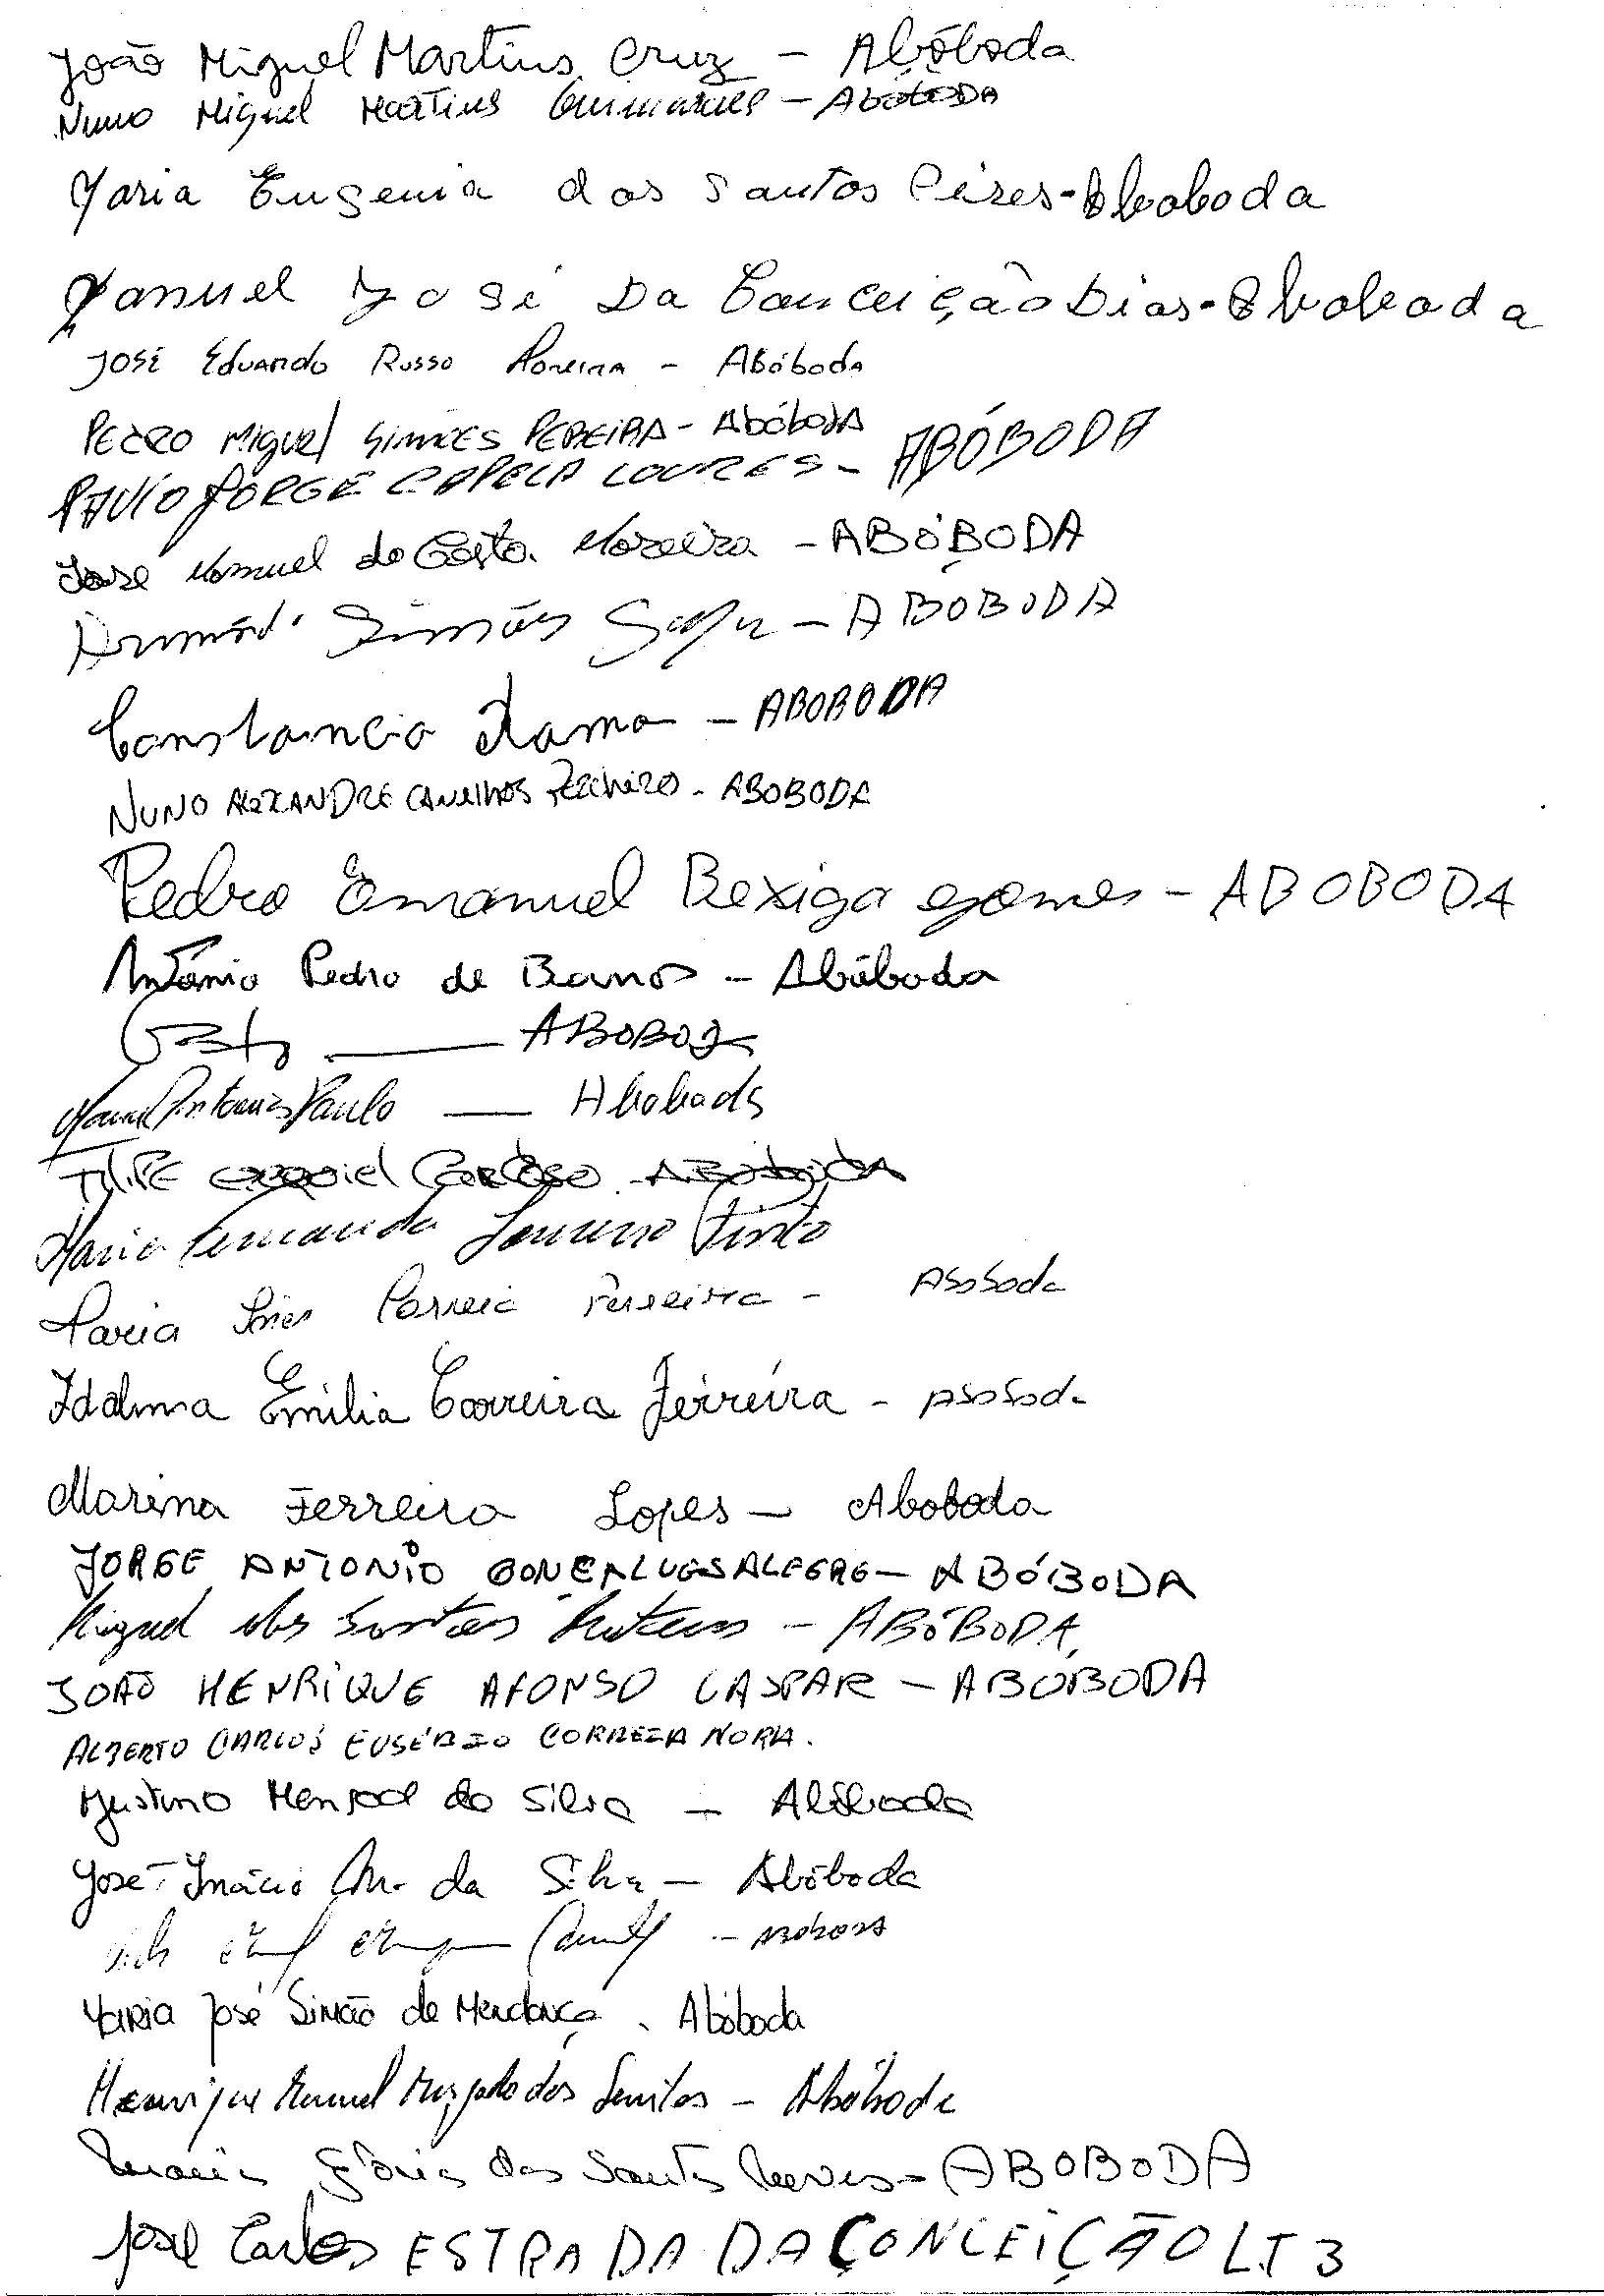 João Miguel Martins Cruz - Abóboda
Nuno Miguel Martins Guimarães - Aboboda
Maria Eugenia dos Santos Pires - Aboboda
Manuel José Da Conceição Dias - Aboboda
José Eduardo Russo Moreira - Abóboda
Pedro Miguel Simões Pereira - Abóboda
Paulo Jorge Capela Loures - ABÓBODA
José Manuel da Costa Moreira - ABÓBODA
Simões - ABÓBODA
Constancia Ramo - ABOBODA
Nuno Alexandre - ABOBODA
Pedro Emanuel Bexiga Gomes - ABOBODA
António Pedro de Barros - Abóboda
ABOBODA
Manuel Antonio Paulo — Aboboda
Filipe Ezequiel Cardoso - Aboboda
Maria Fernanda Loureiro Pinto
Maria Inês Correia Ferreira - Aboboda
Idalina Emilia Correira Ferreira - Aboboda
Marina Ferreira Lopes - Aboboda
JORGE ANTONIO GONÇALVES ALEGRE - ABÓBODA
Miguel dos Santos - ABÓBODA
JOÃO HENRIQUE AFONSO GASPAR - ABÓBODA
ALBERTO CARLOS EUSÉBIO CORREIA NORA.
da Silva - Abóboda
José Inácio da Silva - Abóboda
Maria José Simão de Mendonça - Abóboda
Henrique Manuel dos Santos - Abóboda
Maria Glória dos Santos Neves - ABOBODA
José Carlos ESTRADA DA CONCEIÇÃO LT 3